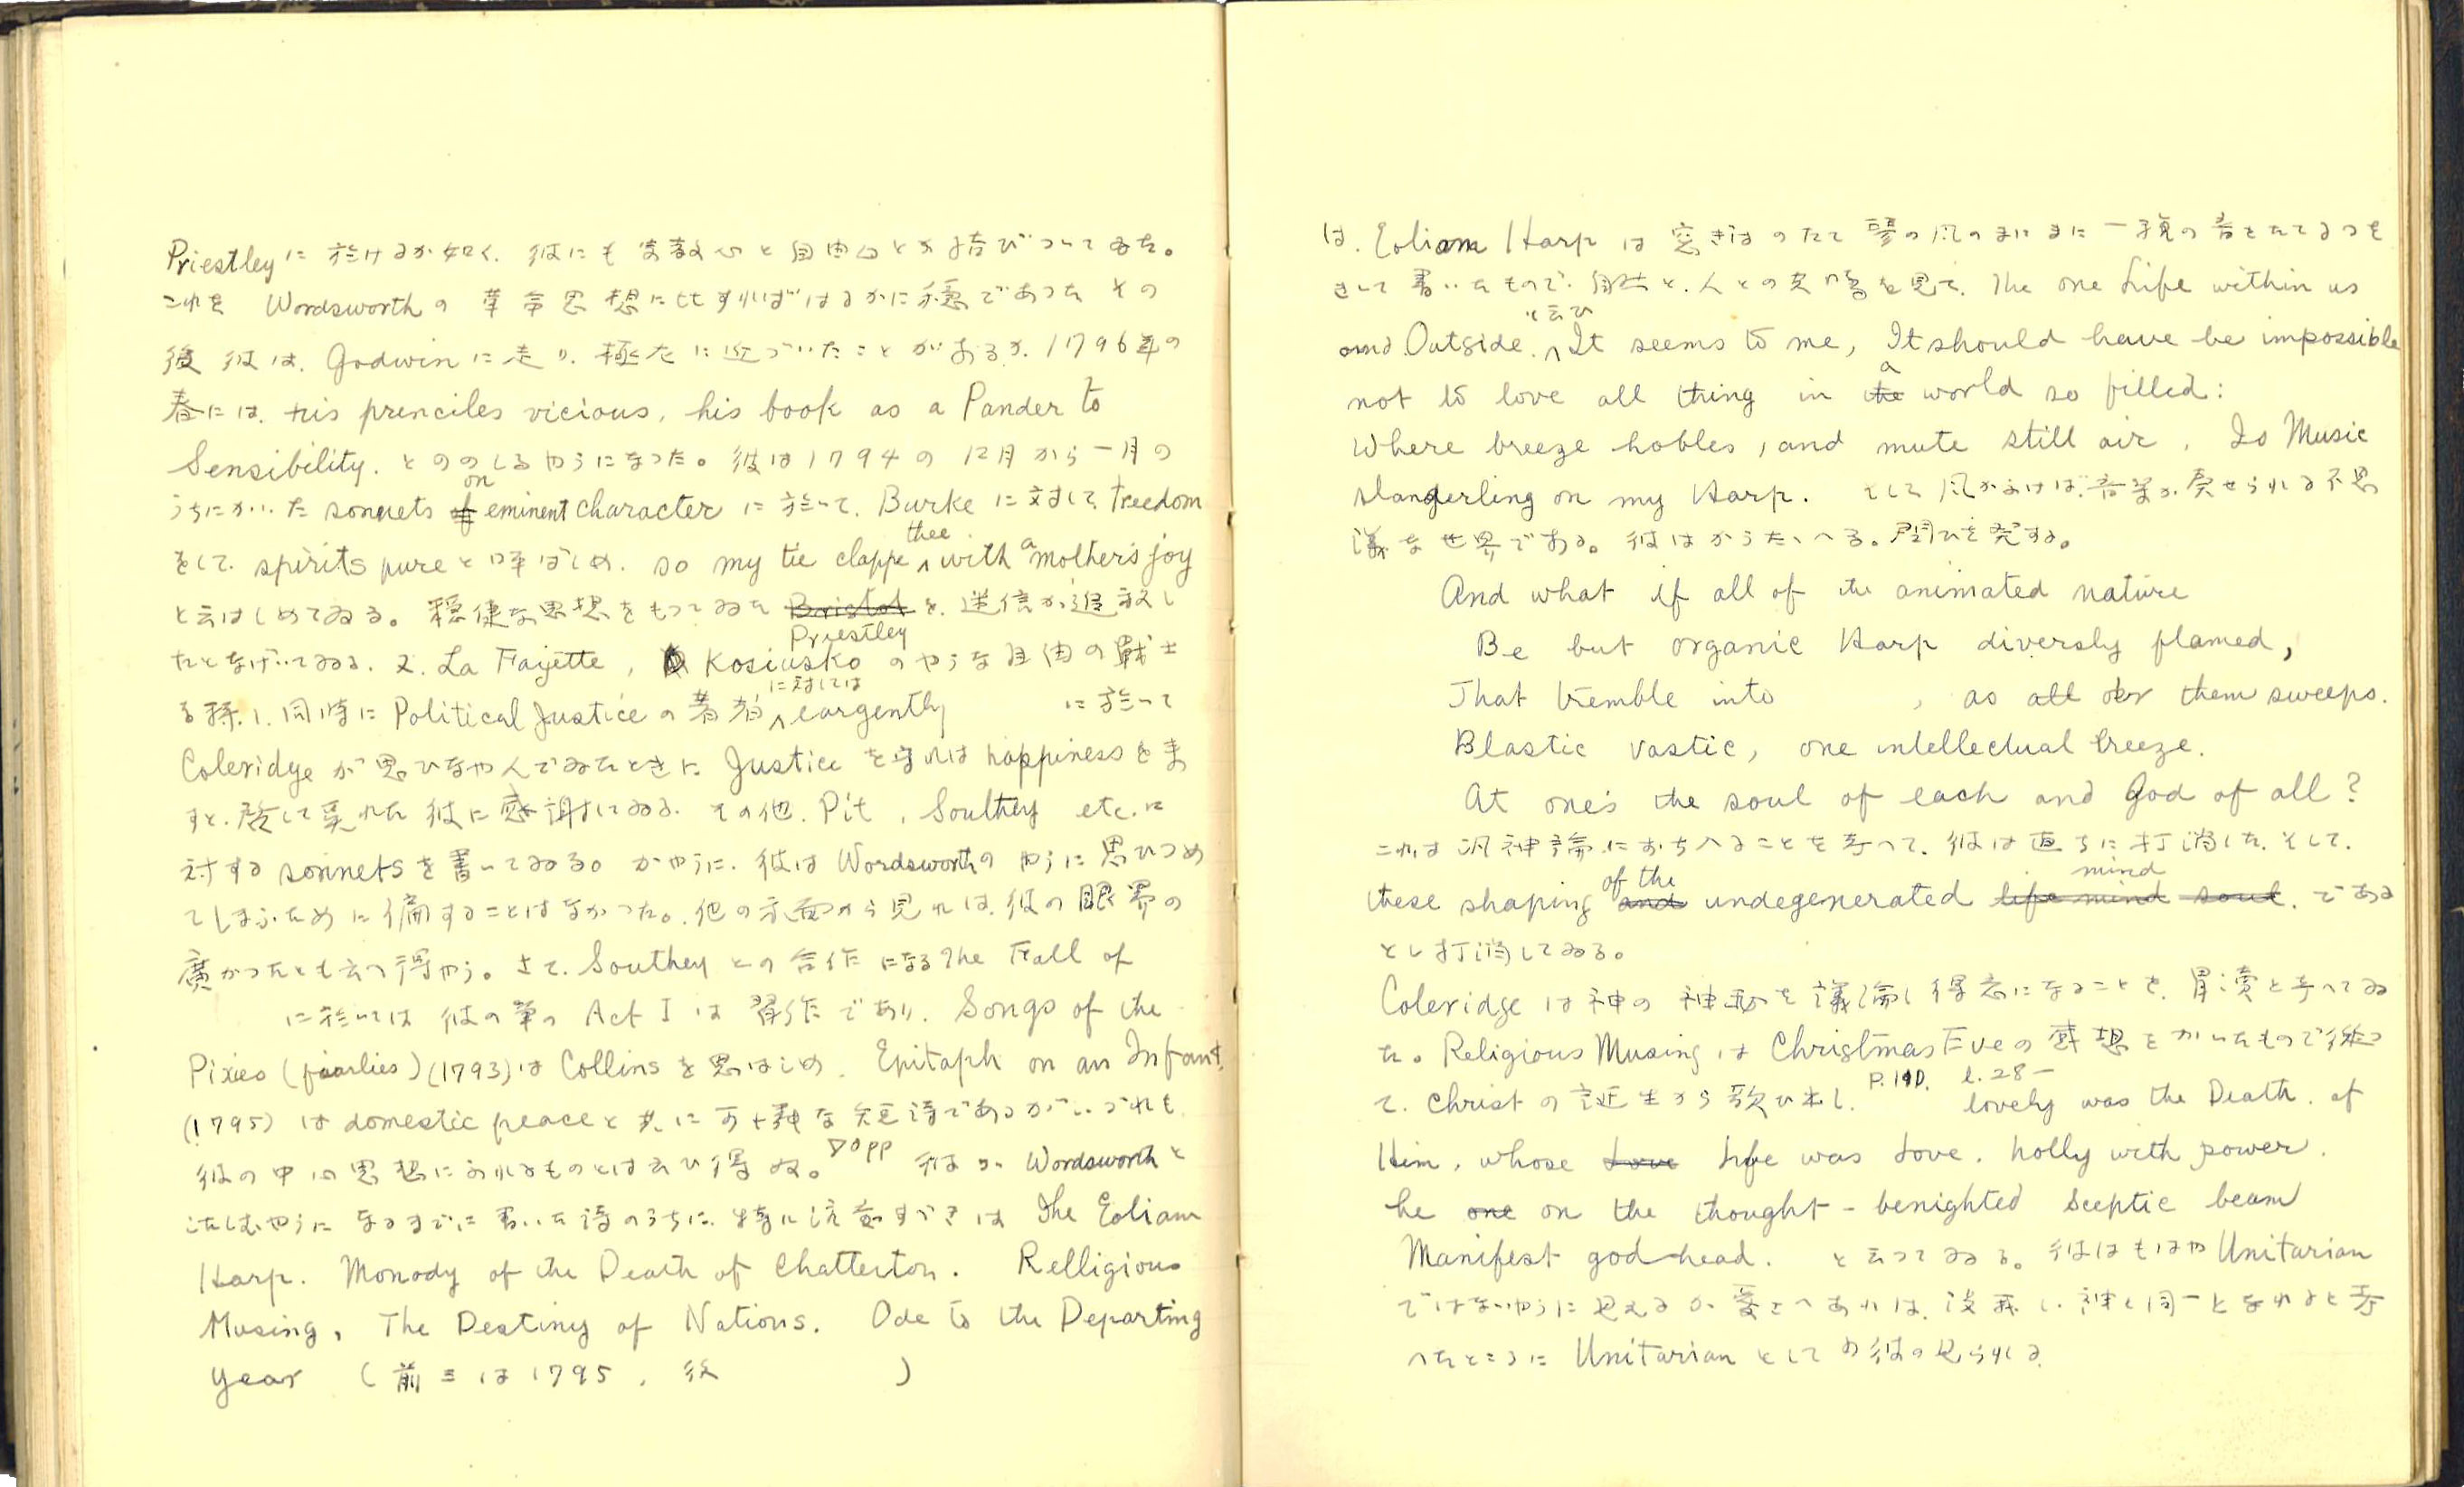 Priestley に於けるが如く、彼にも宗教心と自由心とが結びついてゐた。
これを Wordsworth の革命思想に比すればはるかに穏であつた その
後 彼は、Godwin に走り、極左に近づいたことがあるが、1796年の
春には、his prenciles vicious, his book as a Pander to
Sensibility. とののしるやうになつた。彼は1794の12月から一月の
うちにかいた sonnets on eminent character に於て、Burke に対して freedom
をして spirits pure と呼ばしめ、so my tie clappe thee with a mother's joy
と云はしめてゐる。穏健な思想をもつてゐた Priestley を、迷信が追放し
たとなげいてゐる、又 La Fayette, Kosiusko のやうな自由の戦士
同時に Political Justice の著者に対しては eargently に於て
Coleridge が思ひなやんでゐたときに Justice を守れは happiness をま
すと、啓して呉れた彼に感謝してゐる その他、Pit, Southey etc. に
対する sonnets を書いてゐる。かやうに、彼は Wordsworth のやうに思ひつめ
てしまふために偏することはなかつた。他の方面から見れは、彼の眼界の
廣かつたとも云つ得やう。さて、Southey との合作になる The Fall of
に於いては 彼の筆の Act I は習作であり、Songs of the
Pixies (fairlies) (1793) は Collins を思はしめ、Epitaph on an Infant
(1795) は domestic peace と共に可憐な短詩であるがいづれも
彼の中心思想にふれるものとは云ひ得ぬ。▽opp 彼が Wordsworth と
したしむやうになるまでに書いた詩のうちに、特に注意すべきは The Eoliam
Harp. Monody of the Death of Chatterton. Relligious
Musing, The Destiny of Nations. Ode to the Departing
year (前三は1795, 後 )
は、Eoliam Harp は窓ぎはのたて琴の風のまにまに一種の音をたてるのを
きいて書いたもので、自然と、人との共鳴を見て、The one Life within us
and Outside. と云ひ It seems to me, It should have be impossible
not to love all thing in a world so filled:
Where breeze hobles, and mute still air, Is Music
slangerling on my Harp. そして風がふけば、音楽が奏せられる不思
議な世界である。彼はかううたへる。問ひを発する。
And what if all of the animated nature
Be but organic Harp diversly flamed,
That tremble into , as all oer them sweeps.
Blastic vastic, one intellectual breeze.
At one's the soul of each and God of all?
これは汎神論におち入ることを考へて、彼は直ちに打消した、そして、
these shaping of the undegenerated mind. である
とし打消してゐる。
Coleridge は神の神秘を議論し得意になることを、冒涜と考へてゐ
た。Religious Musing は Christmas Eve の感想をかいたもので
て、Christ の誕生から歌ひ出し、P. 110. l. 28— lovely was the Death of
Him, whose Life was Love. holly with power.
he on the thought-benighted Sceptic beam
Manifest godhead. と云つてゐる。彼はもはや Unitarian
ではないやうに見えるが、愛さへあれは、没我し、神と同一となれると考
へたところに Unitarian としての彼の見られる